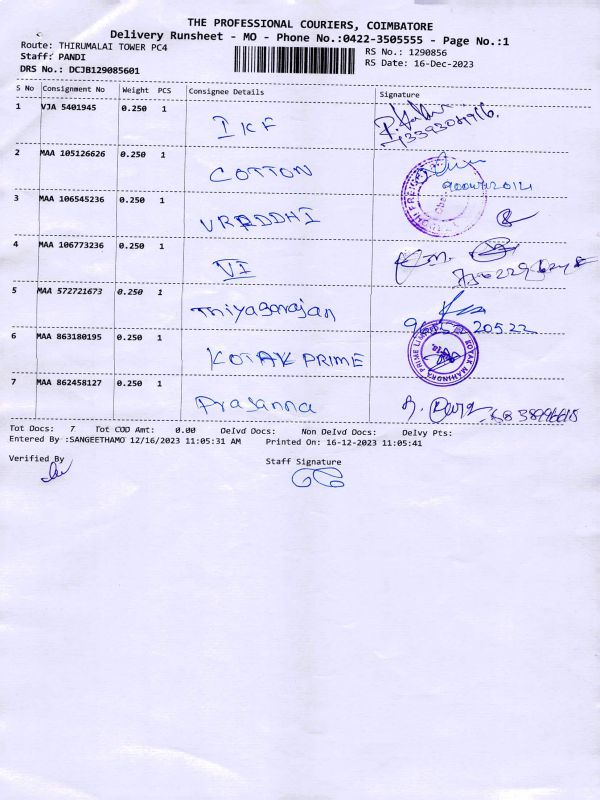 THE PROFESSIONAL COURIERS, COIMBATORE
Delivery Runsheet - MO - Phone No.:0422-3505555 - Page No.:1
Route: THIRUMALAI TOWER PC4 RS No.: 1290856
Staff: PANDI RS Date: 16-Dec-2023
DRS No.: DCJB129085601
S No Consignment No Weight PCS Consignee Details Signature
1 VJA 5401945 0.250 1 IKF
2 MAA 105126626 0.250 1 COTTON
3 MAA 106545236 0.250 1 VRADDHI
4 MAA 106773236 0.250 1 VI
5 MAA 572721673 0.250 1 Thiyagarajan
6 MAA 863180195 0.250 1 KOTAK PRIME
KOTAK MAHINDRA PRIME LIMITED
7 MAA 862458127 0.250 1 Prasanna
Tot Docs: 7 Tot COD Amt: 0.00 Delvd Docs: Non Delvd Docs: Delvy Pts:
Entered By :SANGEETHAMO 12/16/2023 11:05:31 AM Printed On: 16-12-2023 11:05:41
Verified By Staff Signature